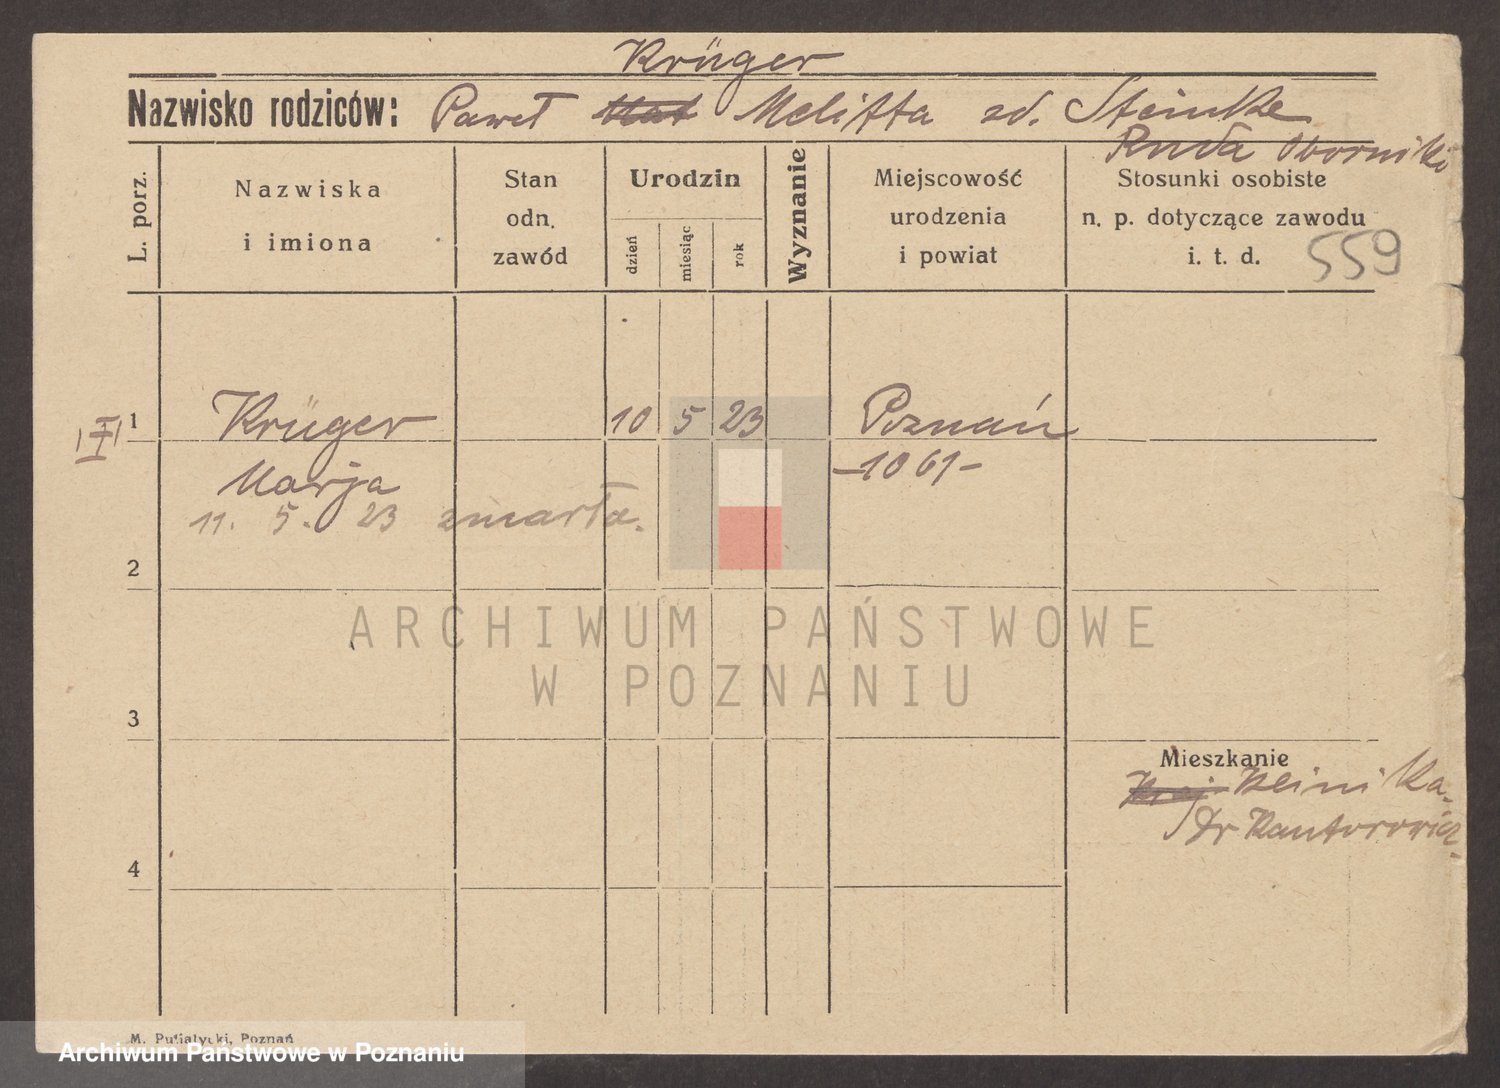 Krüger
Nazwisko rodziców: Paweł Melitta zd. Steinke
Ruda Oborniki
L. porz.
Nazwiska
i imiona
Stan
odn.
zawód
Urodzin
dzień
miesiąc
rok
Wyznanie
Miejscowość
urodzenia
i powiat
Stosunki osobiste
n. p. dotyczące zawodu
i. t. d.
559
1 Krüger 10 5 23 Poznań
Marja -1061-
11. 5. 23 zmarła.
2
ARCHIWUM PAŃSTWOWE
W POZNANIU
3
Mieszkanie
Klinika
Dr Kantorowicz
4
M. Putiatycki, Poznań
Archiwum Państwowe w Poznaniu